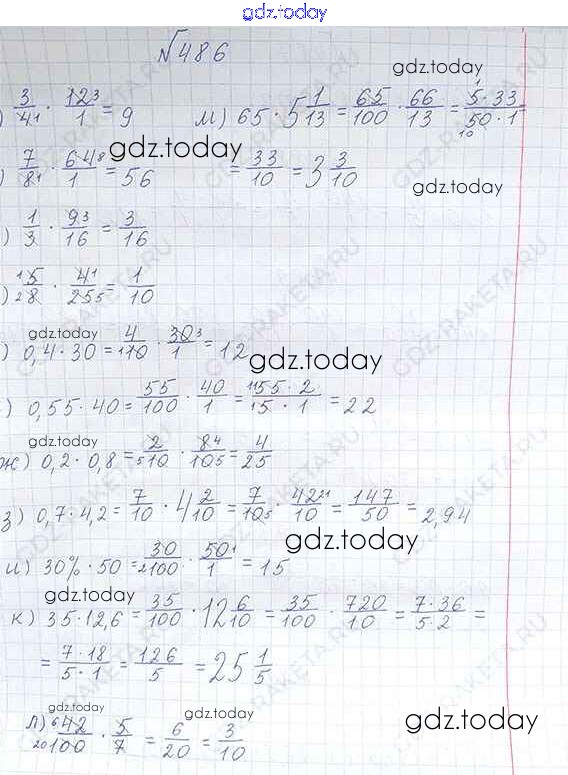 gdz.today
№486
) 3/4 1 · 12 3/1 = 9 м) 65 · 5 1/13 = 65/100 · 66/13 = 1 5·33/50·1 10 =
gdz.today
) 7/8 1 · 64 8/1 = 56 = 33/10 = 3 3/10
gdz.today
gdz.today
) 1/3 · 9 3/16 = 3/16
) 1 5/2 8 · 4 1/25 5 = 1/10
gdz.today
) 0,4 · 30 = 4/1 10 · 30 3/1 = 12
gdz.today
) 0,55 · 40 = 55/100 · 40/1 = 11 55·2/1 5·1 = 22
gdz.today
ж) 0,2 · 0,8 = 2/5 10 · 8 4/10 5 = 4/25
з) 0,7 · 4,2 = 7/10 · 4 2/10 = 7/10 5 · 42 21/10 = 147/50 = 2,94
gdz.today
и) 30% · 50 = 30/2 100 · 50 1/1 = 15
gdz.today
к) 35 · 12,6 = 35/100 · 12 6/10 = 35/100 · 720/10 = 7·36/5·2 =
= 7·18/5·1 = 126/5 = 25 1/5
gdz.today
gdz.today
л) 6 42/20 100 · 5/7 = 6/20 = 3/10
GDZ-RAKETA.RU